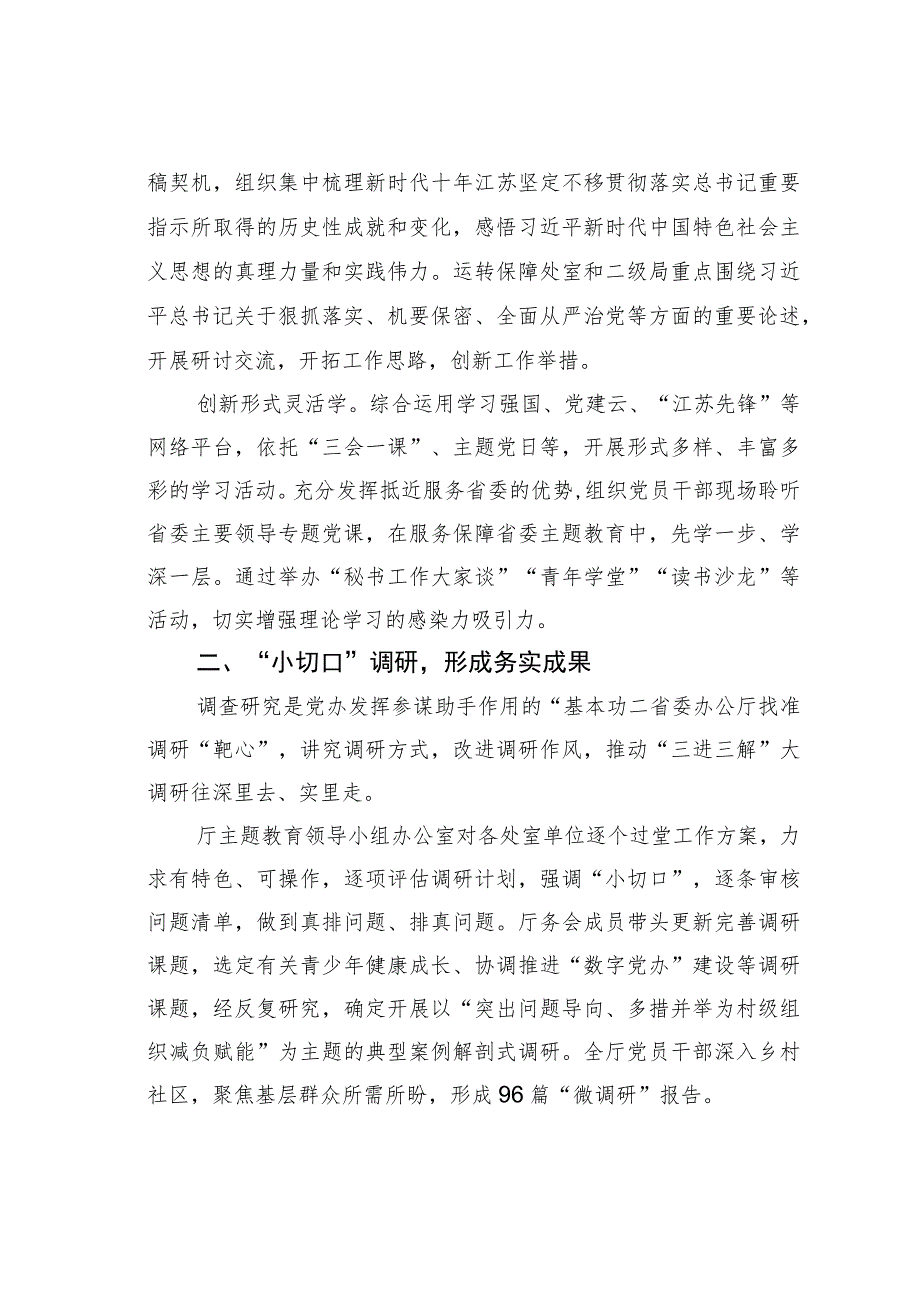 稿契机，组织集中梳理新时代十年江苏坚定不移贯彻落实总书记重要
指示所取得的历史性成就和变化，感悟习近平新时代中国特色社会主
义思想的真理力量和实践伟力。运转保障处室和二级局重点围绕习近
平总书记关于狠抓落实、机要保密、全面从严治党等方面的重要论述，
开展研讨交流，开拓工作思路，创新工作举措。
创新形式灵活学。综合运用学习强国、党建云、“江苏先锋”等
网络平台，依托“三会一课”、主题党日等，开展形式多样、丰富多
彩的学习活动。充分发挥抵近服务省委的优势,组织党员干部现场聆听
省委主要领导专题党课，在服务保障省委主题教育中，先学一步、学
深一层。通过举办“秘书工作大家谈”“青年学堂”“读书沙龙”等
活动，切实增强理论学习的感染力吸引力。
二、“小切口”调研，形成务实成果
调查研究是党办发挥参谋助手作用的“基本功二省委办公厅找准
调研“靶心”，讲究调研方式，改进调研作风，推动“三进三解”大
调研往深里去、实里走。
厅主题教育领导小组办公室对各处室单位逐个过堂工作方案，力
求有特色、可操作，逐项评估调研计划，强调“小切口”，逐条审核
问题清单，做到真排问题、排真问题。厅务会成员带头更新完善调研
课题，选定有关青少年健康成长、协调推进“数字党办”建设等调研
课题，经反复研究，确定开展以“突出问题导向、多措并举为村级组
织减负赋能”为主题的典型案例解剖式调研。全厅党员干部深入乡村
社区，聚焦基层群众所需所盼，形成96篇“微调研”报告。